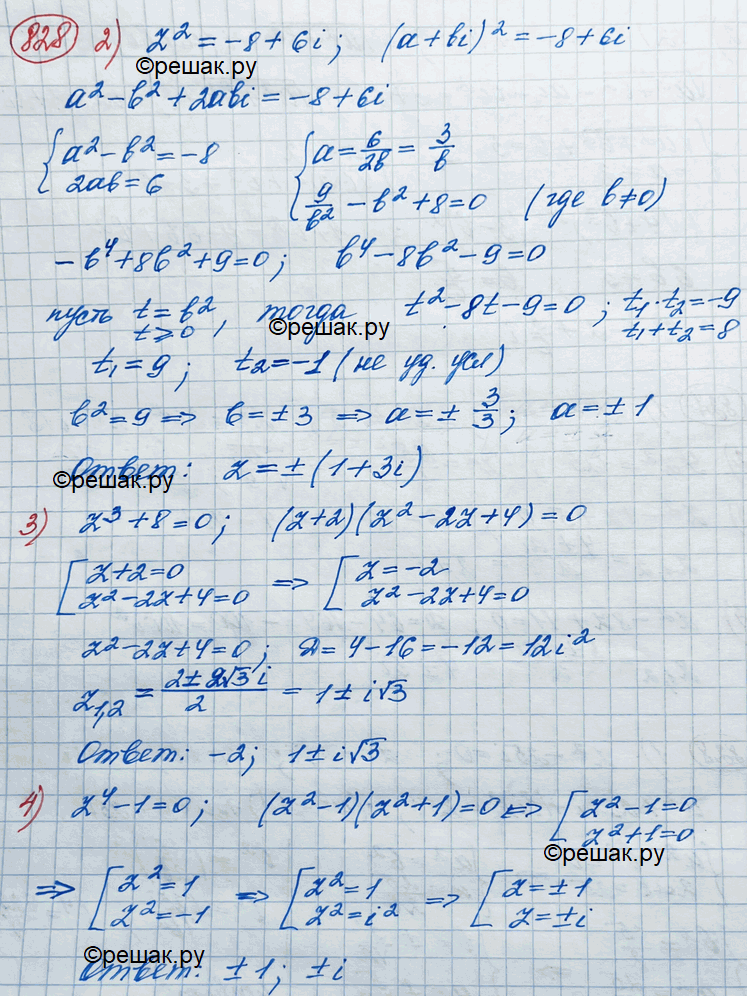 828 2) z² = -8 + 6i ; (a + bi)² = -8 + 6i
©решак.ру
a² - b² + 2abi = -8 + 6i
{ a² - b² = -8 { a = 6/2b = 3/b
2ab = 6 9/b² - b² + 8 = 0 (где b ≠ 0)
-b⁴ + 8b² + 9 = 0 ; b⁴ - 8b² - 9 = 0
пусть t = b², тогда t² - 8t - 9 = 0 ; t₁·t₂ = -9
t ⩾ 0 ©решак.ру t₁ + t₂ = 8
t₁ = 9 ; t₂ = -1 (не уд. усл)
b² = 9 ⇒ b = ±3 ⇒ a = ± 3/3 ; a = ±1
Ответ: z = ±(1 + 3i)
©решак.ру
3) z³ + 8 = 0 ; (z + 2)(z² - 2z + 4) = 0
[ z + 2 = 0 ⇒ [ z = -2
z² - 2z + 4 = 0 z² - 2z + 4 = 0
z² - 2z + 4 = 0 ; D = 4 - 16 = -12 = 12i²
z₁,₂ = (2 ± 2√3 i)/2 = 1 ± i√3
Ответ: -2 ; 1 ± i√3
4) z⁴ - 1 = 0 ; (z² - 1)(z² + 1) = 0 ⇔ [ z² - 1 = 0
z² + 1 = 0
©решак.ру
⇒ [ z² = 1 ⇒ [ z² = 1 ⇒ [ z = ±1
z² = -1 z² = i² z = ±i
©решак.ру
Ответ: ±1 ; ±i